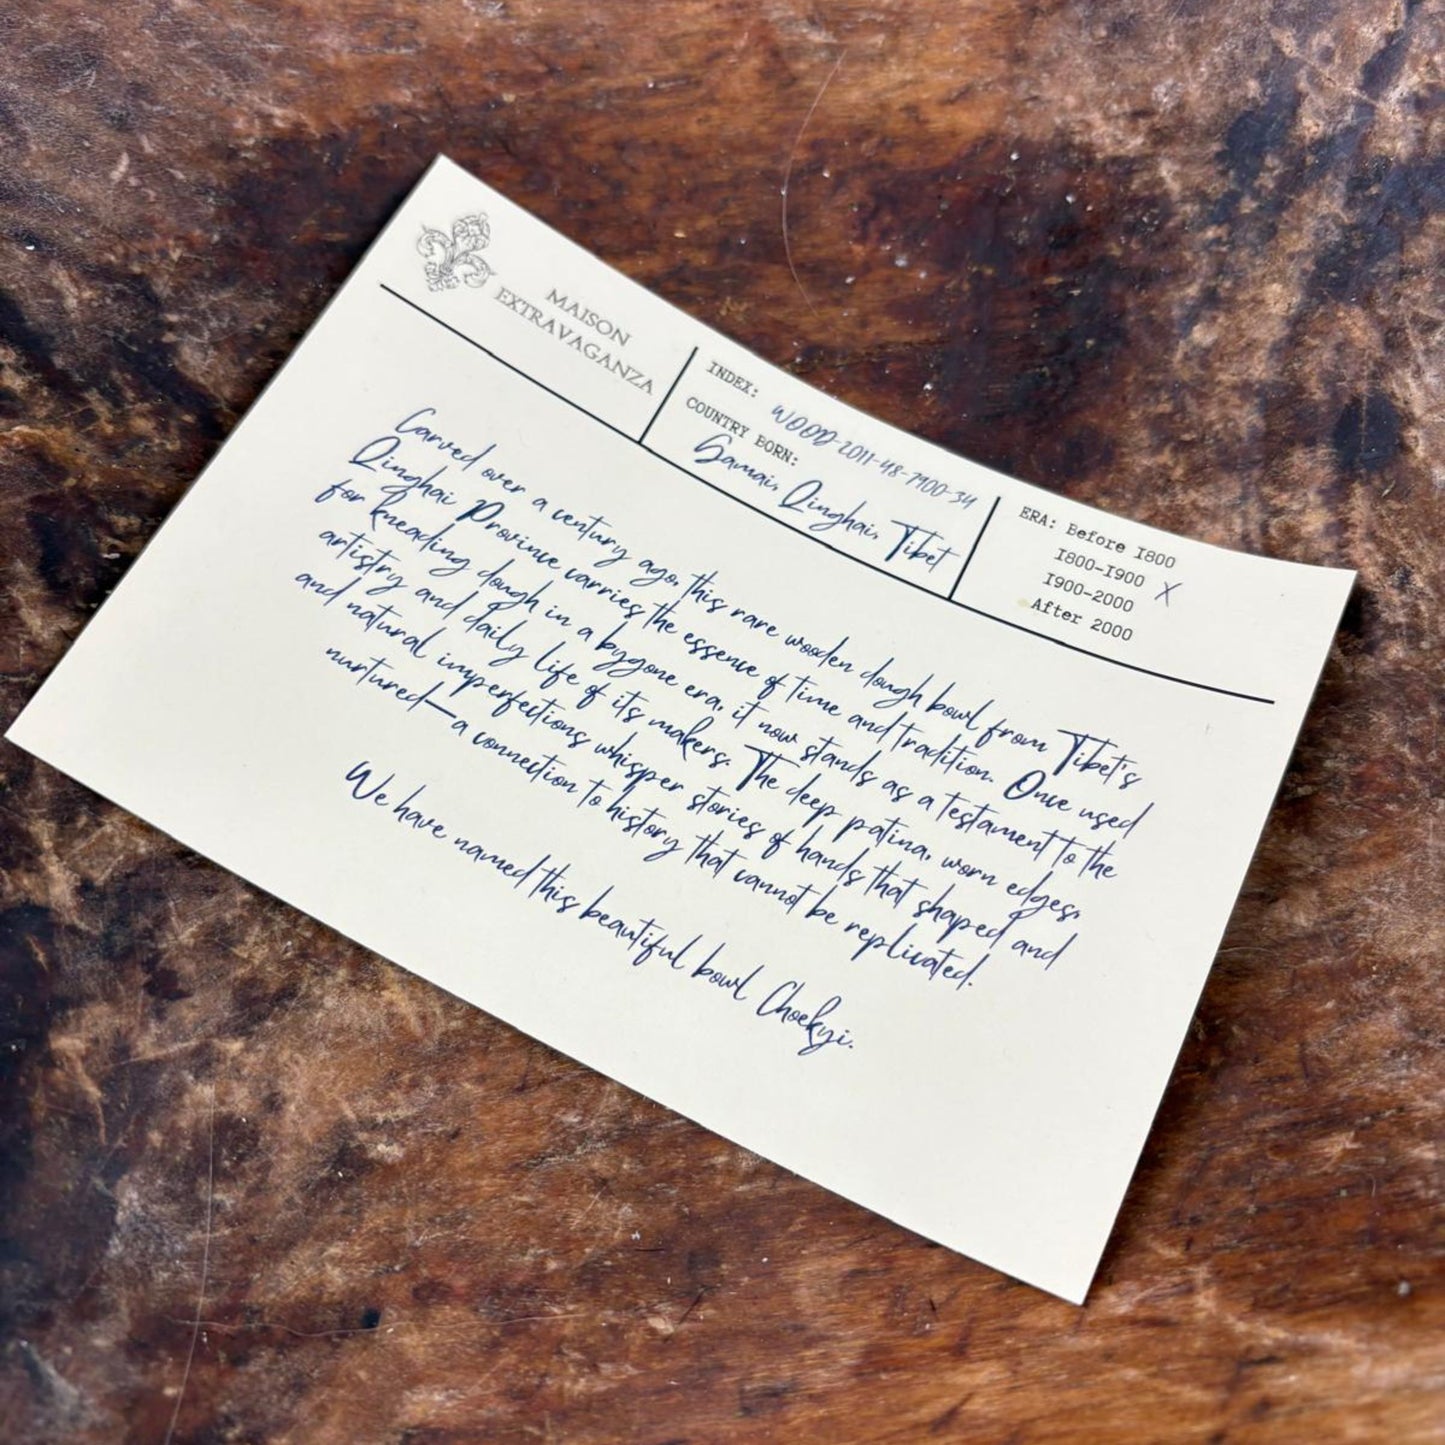 MAISON
EXTRAVAGANZA
INDEX: WOOD-2011-48-1900-34
COUNTRY BORN:
Gamai, Qinghai, Tibet
ERA: Before 1800
1800-1900 X
1900-2000
After 2000
Carved over a century ago, this rare wooden dough bowl from Tibet's
Qinghai Province carries the essence of time and tradition. Once used
for kneading dough in a bygone era, it now stands as a testament to the
artistry and daily life of its makers. The deep patina, worn edges,
and natural imperfections whisper stories of hands that shaped and
nurtured—a connection to history that cannot be replicated.
We have named this beautiful bowl Choekyi.